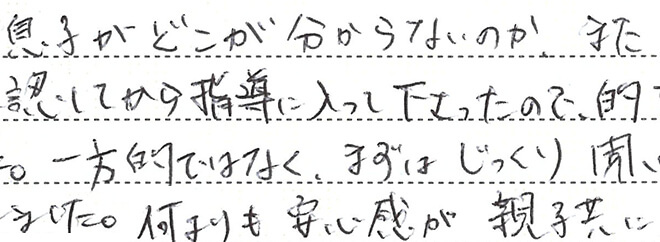 息子がどこが分からないのか、また
認してから指導に入って下さったので、的
た。一方的ではなく、まずは じっくり 聞い
ました。何よりも 安心感が 親子共に